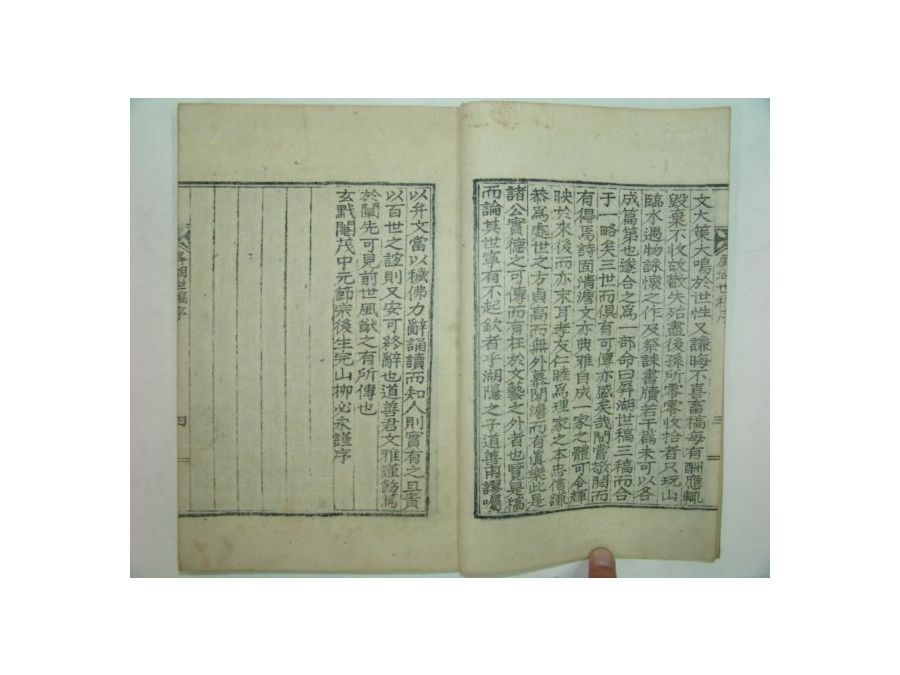 文大策大鳴於世性又謙晦不喜畜稿每有酬應輒
毀棄不收故散失殆盡後孫所零零收拾者只玩山
臨水遇物詠懷之作及祭誄書牘若干篇未可以各
成篇第也遂合之爲一部命曰屛湖世稿三稿而合
于一略矣三世而俱有可傳亦盛矣哉閒嘗敬閱而
有得焉詩固淸澹文亦典雅自成一家之體可令輝
映於來後而亦末耳孝友仁睦爲理家之本忠信謙
恭爲處世之方貞高而無外慕閒澹而有眞樂此是
諸公實德之可傳而有在於文藝之外者也覽是稿
而論其世寧有不起欽者乎湖隱之子道善甫謬囑
屛湖世稿序
三
以弁文當以穢佛力辭誦讀而知人則實有之且責
以百世之誼則又安可終辭也道善君文雅謹飭爲
於闡先可見前世風猷之有所傳也
玄黓閹茂中元節宗後生完山柳必永謹序
屛湖世稿序
四